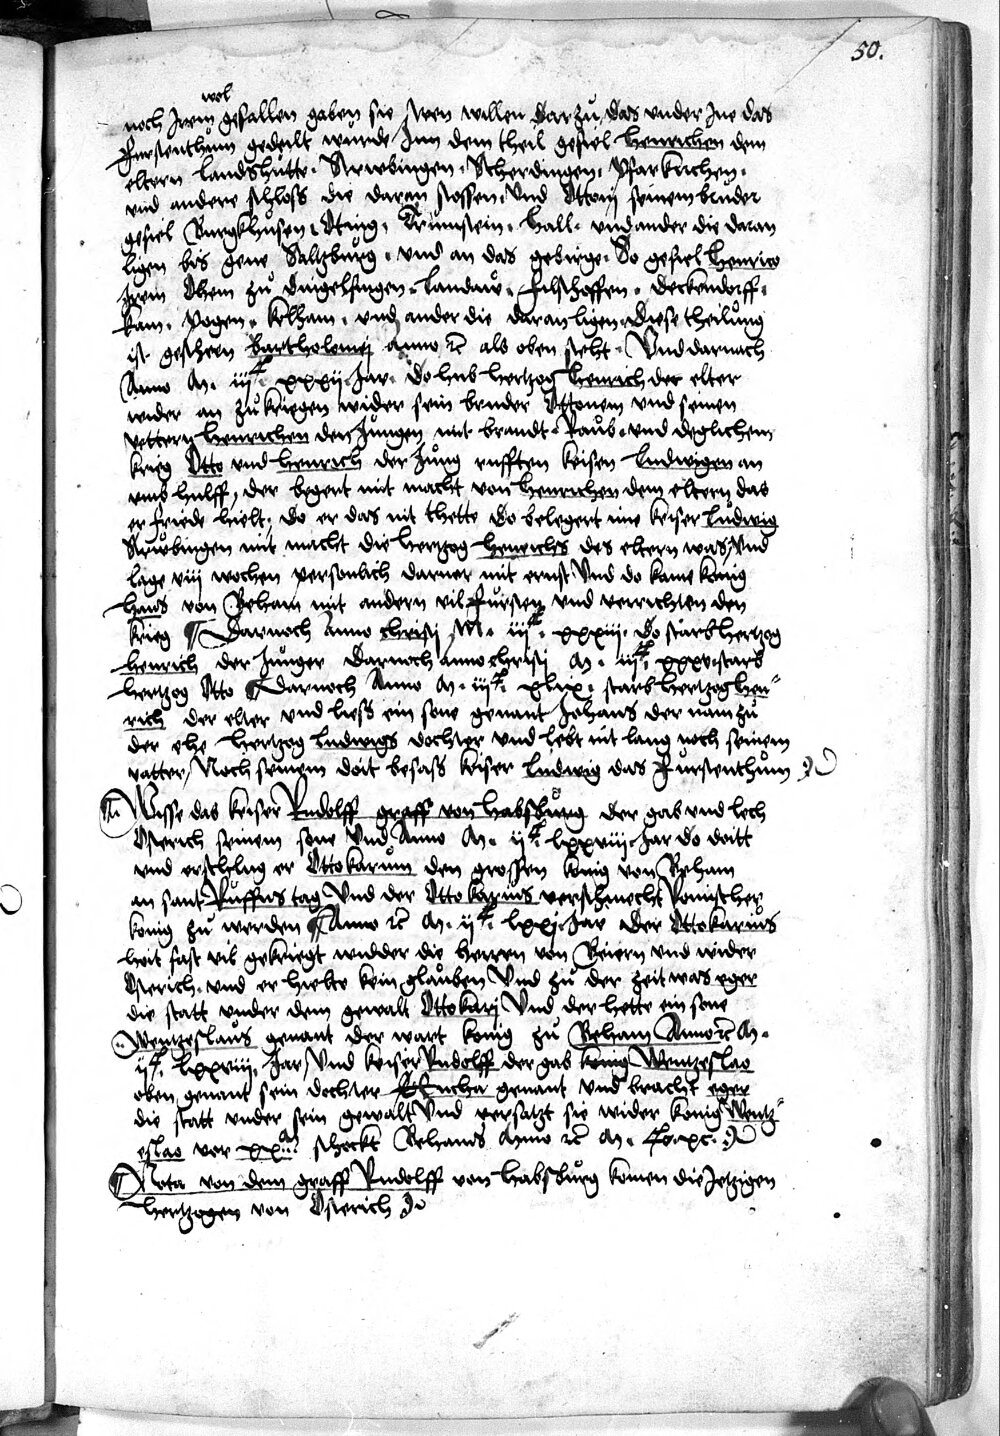 50.
wol
noch Jrem gefallen gaben sie Jren willen darzu, das vnder Jne das
Furstenthum gedeilt wurde Jnn dem theil gefiel Henrichen dem
eltern Landshutte. Strwbingen. Scherdingen. Pfarkirchen.
vnd andere schloss die daran stossen. Vnd Ottonj seinem bruder
gefiel Burgkhusen. Oting. Trunstein. Hall. vnd ander die daran
ligen bis gene Saltzburg. vnd an das gebirge. So gefiel Henrico
Jrem Ohem zu Dingelfingen. Landaw. Filszhoffen. Deckendorff.
kam. Pogen. kelham. vnd ander die daran ligen. Diese theilung
ist geschen bartholomej Anno etc als oben steht. Vnd darnach
Anno M. iijc. xxxij. Jar. do hub hertzog Henrich der elter
wider an zu kriegen wider sein bruder Ottonem vnd seinen
vettern Henrichen den Jungen mit brandt. Raub. vnd deglichem
krieg Otto vnd Henrich der Jung rufften keisen Ludwigen an
vmb hulff, der begert mit macht von Henrichen dem eltern das
er friede hielt. do er das nit thette do belegert ine keiser Ludwig
Strwbingen mit macht die hertzog Henrichs des eltern was, Vnd
lage viij wochen personlich darnor mit ernst Vnd do kame konig
Hans von Beham mit andern vil Fursten vnd verrichten den
krieg ¶ Darnoch Anno christj M. iijc. xxxiij. do starb hertzog
Henrich der Junger Darnoch anno christj M. iijc. xxxv. starb
hertzog Otto ¶ Darnoch Anno M. iijc. xlix. starb hertzog Hen"
rich der elter vnd liess ein sone genant Johans der nam zu
der ehe hertzog Ludwigs dochter vnd lebt nit lang noch seinem
vatter, Noch seinem doit besass keiser Ludwig das Furstenthum
¶ Wisse das keiser Rudolff graff von Habsburg der gab vnd lech
Osterich seinem sone Vnd Anno M. ijc. lxxviij. Jar do doitt
vnd erschlug er Ottokarum den grossen konig von Beham
an sant Ruffus tag Vnd der Ottokarius verschmecht Romischer
konig zu werden ¶ Anno etc M. ijc. lxxj. Jar Der Ottokarius
hoit fast vil gekriegt widder die herren von Beiern vnd wider
Osterich. vnd er hielte kein glauben Vnd zu der zeit was eger
die statt vnder dem gewalt Ottokarj Vnd der hette ein sone
Wentzeslaus genant der wart konig zu Beham Anno etc M.
ijc. lxxviij. Jar, Vnd keiser Rudolff der gab konig Wentzeslao
oben genant sein dochter genant vnd bracht eger
die statt vnder sein gewalt Vnd versatzt sie wider konig Wentz"
eslao vor schockt Behams Anno etc M.
¶ Nota von dem graff Rudolff von Habsburg komen die Jetzigen
hertzogen von Osterich